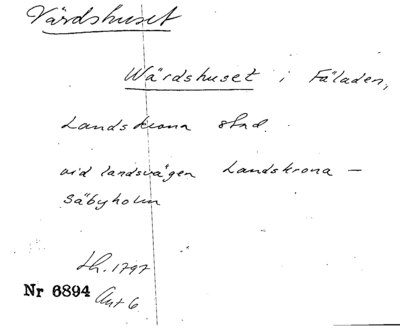 Värdshuset
Wärdshuset i Fäladen,
Landskrona stad.
vid landsvägen Landskrona –
Säbyholm
Lh. 1797
Nr 6894 Ant 6.